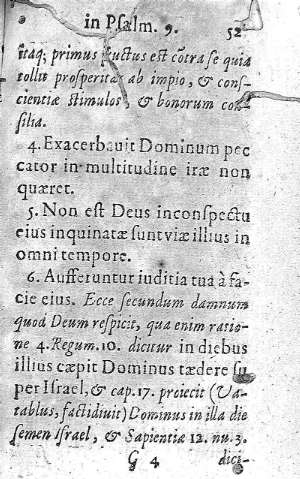 in Psalm. 9. 52
itaq; primus fructus est cōtra se quia
tollit prosperitas ab impio, & cons-
cientiæ stimulos, & bonorum con-
silia.
4. Exacerbauit Dominum pec
cator in multitudine iræ non
quæret.
5. Non est Deus in conspectu
eius inquinatæ sunt viæ illius in
omni tempore.
6. Aufferuntur iuditia tua à fa-
cie eius. Ecce secundum damnum
quod Deum respicit, qua enim ratio-
ne 4. Regum. 10. dicitur in diebus
illius cæpit Dominus tædere su
per Israel, & cap. 17. proiecit (Va-
tablus, factidiuit) Dominus in illa die
semen Israel, & Sapientiæ 12. nu. 3.
G 4 dici-